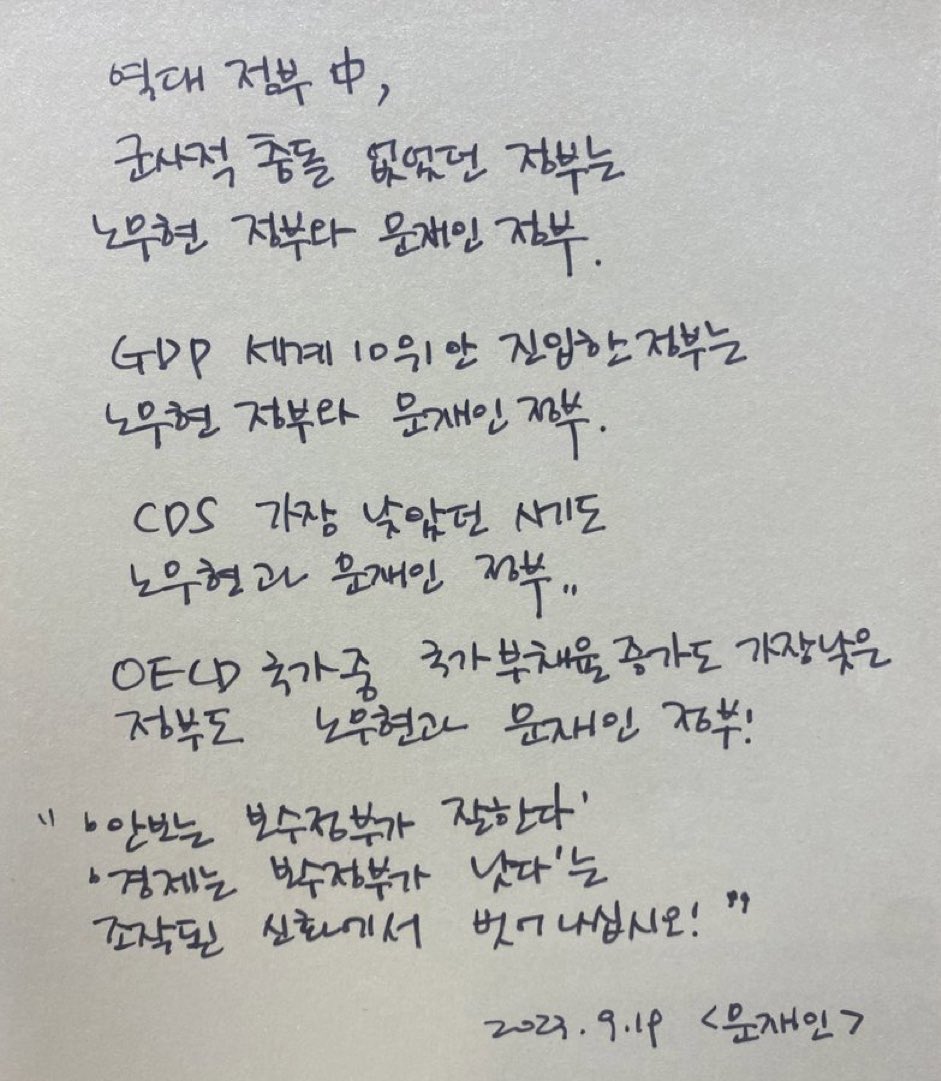 역대 정부 中,
군사적 충돌 없었던 정부는
노무현 정부와 문재인 정부.
GDP 세계 10위 안 진입한 정부는
노무현 정부와 문재인 정부.
CDS 가장 낮았던 시기도
노무현과 문재인 정부..
OECD 국가중 국가부채율 증가도 가장 낮은
정부도 노무현과 문재인 정부!
"'안보는 보수정부가 잘한다'
'경제는 보수정부가 낫다'는
조작된 신화에서 벗어나십시오!"
2023. 9. 19 <문재인>